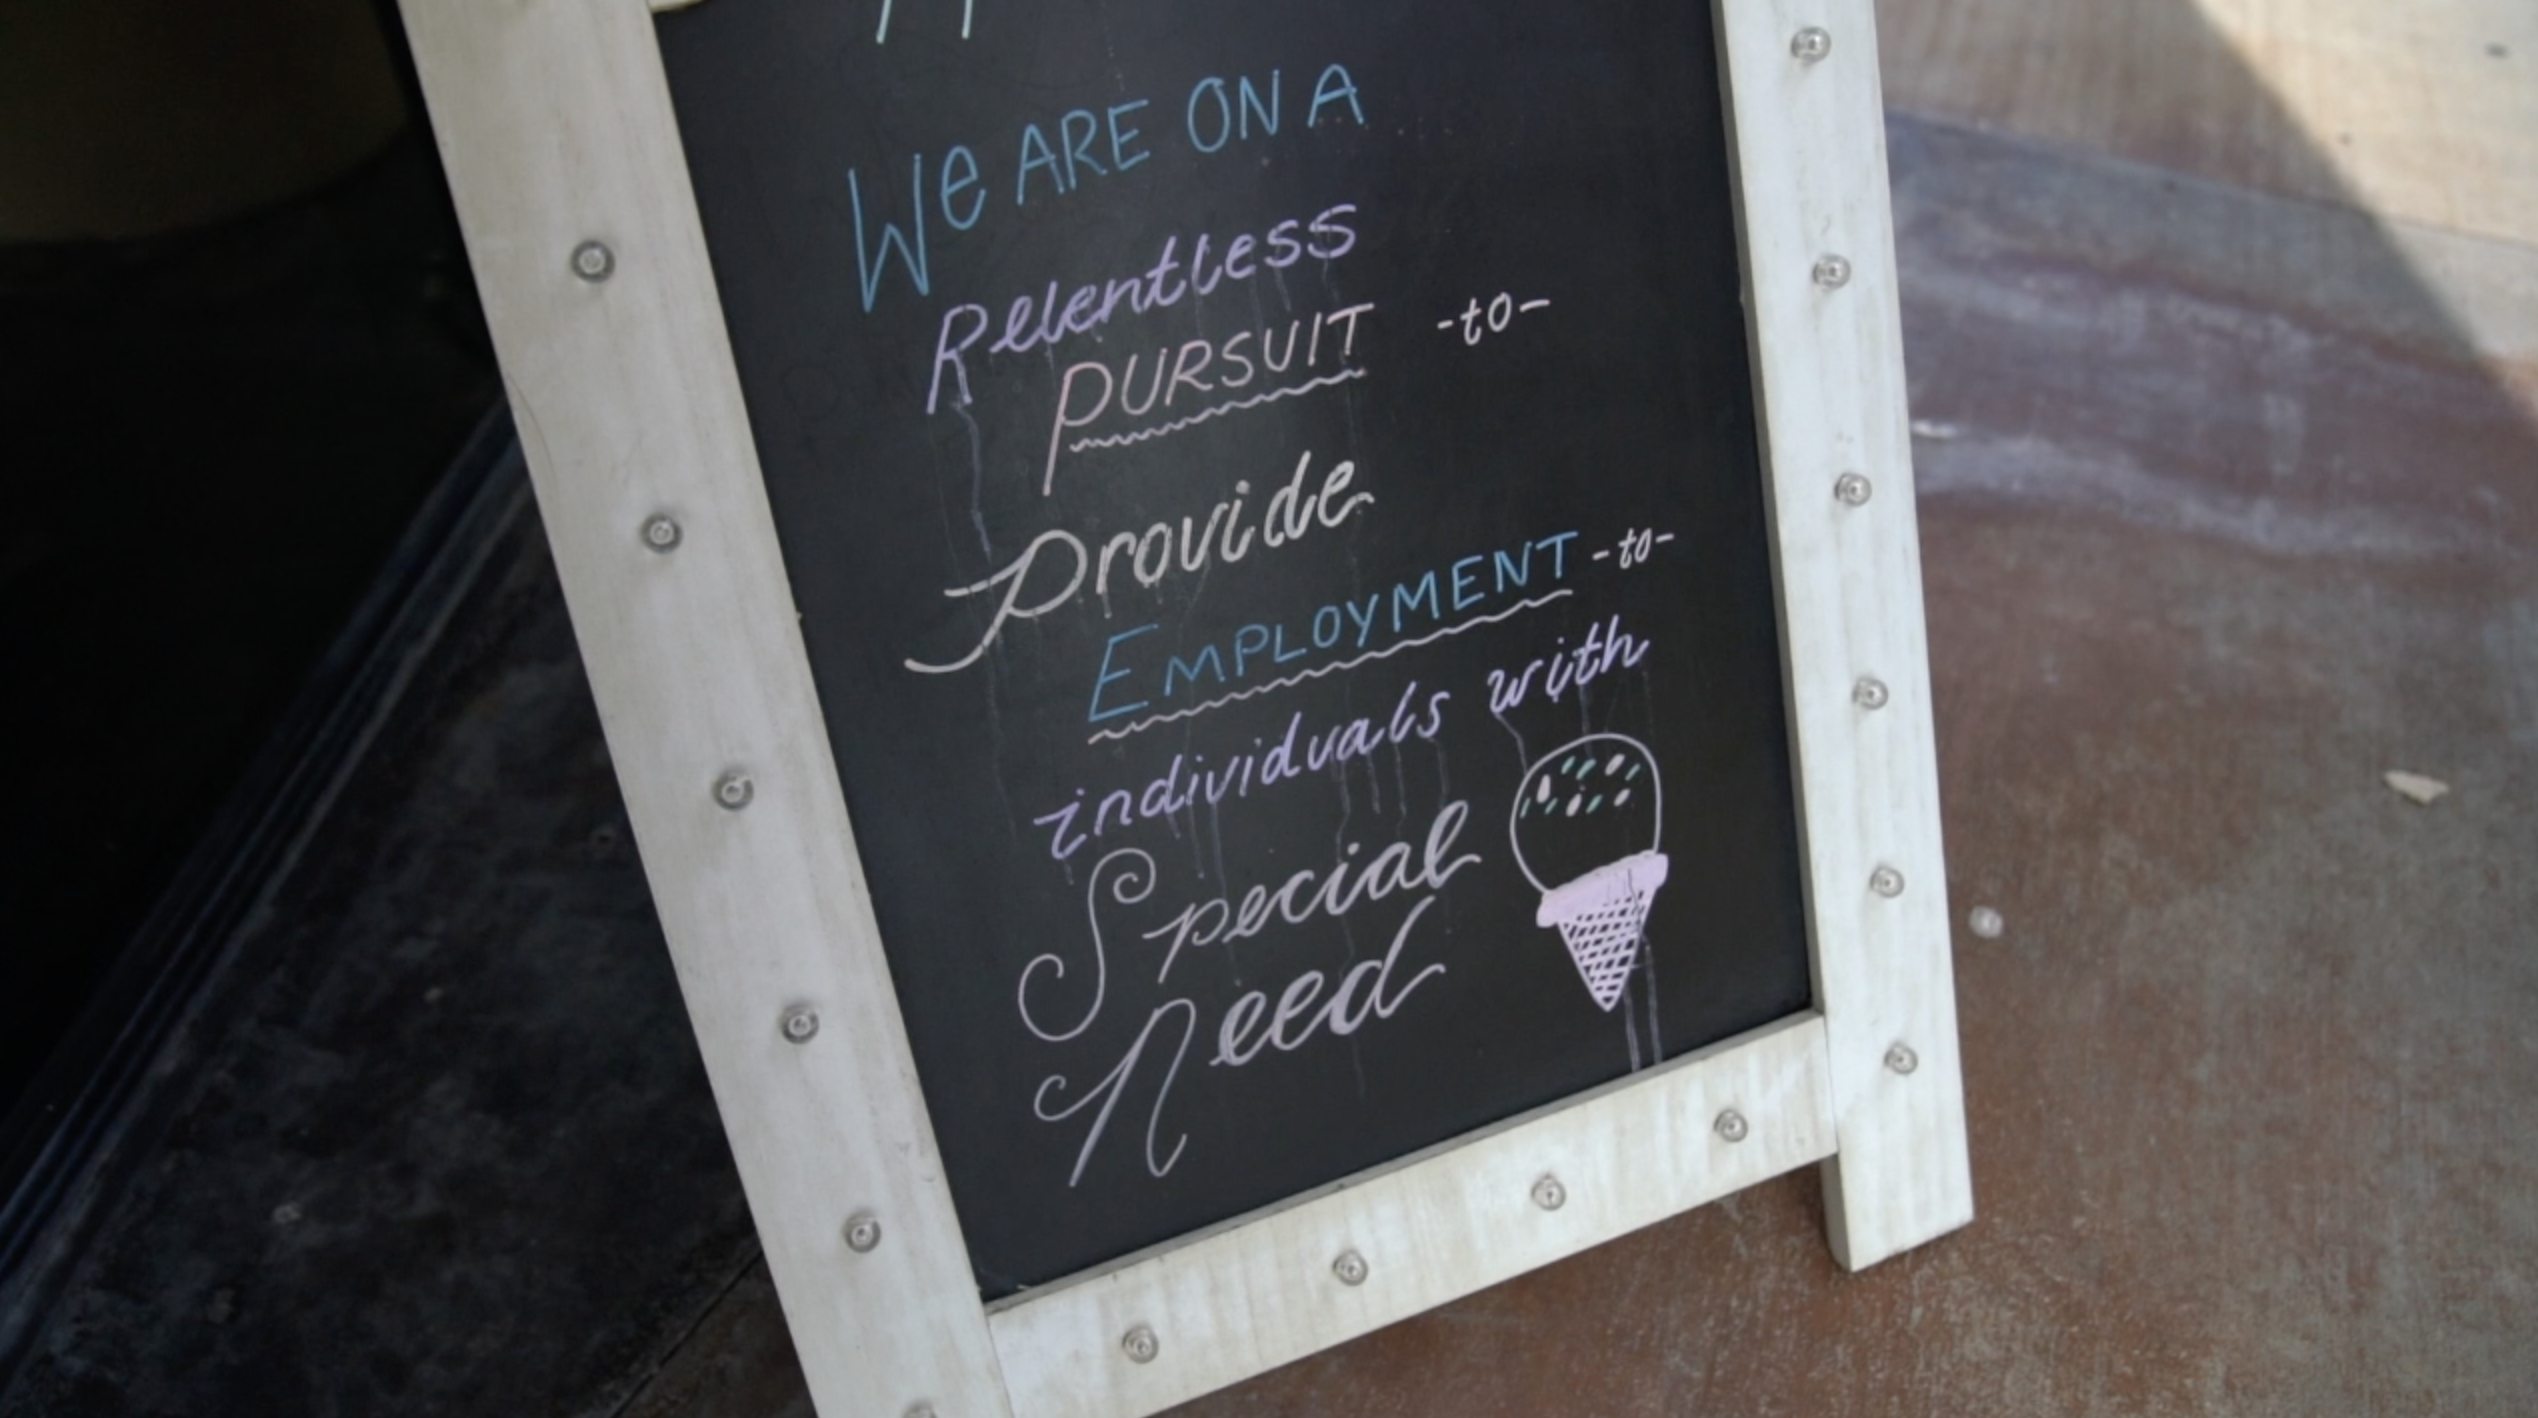 We ARE ON A
Relentless
PURSUIT -to-
Provide
EMPLOYMENT -to-
individuals with
Special
Need